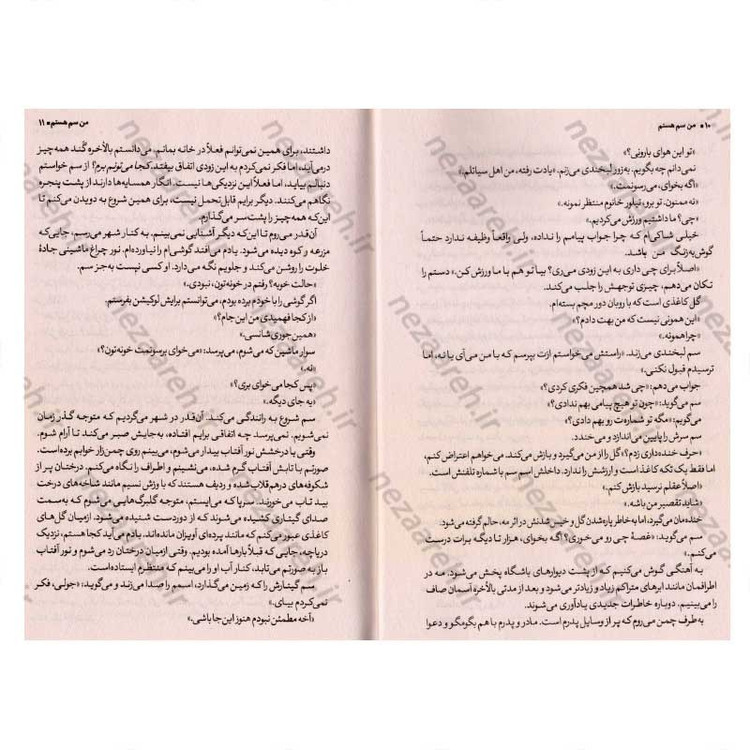 ۱۰ • من سم هستم
«تو این هوای بارونی؟»
نمی‌دانم چه بگویم. به‌زور لبخندی می‌زنم. «یادت رفته، من اهل سیاتلم.»
«اگه بخوای، می‌رسونمت.»
«نه ممنون. تو برو، تیلور خانوم منتظر نمونه.»
«چی؟ ما داشتیم ورزش می‌کردیم.»
خیلی شاکی‌ام که چرا جواب پیامم را نداده، ولی واقعاً وظیفه ندارد حتماً
گوش‌به‌زنگ من باشد.
«اصلاً برای چی داری به این زودی می‌ری؟ بیا تو هم با ما ورزش کن.» دستم را
تکان می‌دهم، چیزی توجهش را جلب می‌کند.
گل کاغذی است که با روبان دور مچم بسته‌ام.
«این همونی نیست که من بهت دادم؟»
«چرا همونه.»
سم لبخندی می‌زند. «راستش می‌خواستم ازت بپرسم که با من می‌آی یا نه، اما
ترسیدم قبول نکنی.»
جواب می‌دهم: «چی شد همچین فکری کردی؟»
سم می‌گوید: «چون تو هیچ پیامی بهم ندادی؟»
می‌گویم: «مگه تو شماره‌ت رو بهم دادی؟»
سم سرش را پایین می‌اندازد و می‌خندد.
«حرف خنده‌داری زدم؟» گل را از من می‌گیرد و بازش می‌کند. می‌خواهم اعتراض کنم،
اما فقط یک تکه کاغذ است و ارزشش را ندارد. داخلش اسم سم با شماره تلفنش است.
«اصلاً عقلم نرسید بازش کنم.»
«شاید تقصیر من باشه.»
خنده‌مان می‌گیرد، اما به‌خاطر پاره‌شدن گل و خیس شدنش در اثر مه، حالم گرفته می‌شود.
سم می‌گوید: «غصهٔ چی رو می‌خوری؟ اگه بخوای، هزار تا دیگه برات درست
می‌کنم.»
به آهنگی گوش می‌کنیم که از پشت دیوارهای باشگاه پخش می‌شود. مه در
اطرافمان مانند ابرهای متراکم زیاد و زیادتر می‌شود و بعد از مدتی بالأخره آسمان صاف
را می‌بینیم. دوباره خاطرات جدیدی یادآوری می‌شوند.
به‌طرف چمن می‌روم که پر از وسایل پدرم است. مادر و پدرم با هم بگومگو و دعوا
من سم هستم • ۱۱
داشتند، برای همین نمی‌توانم فعلاً در خانه بمانم. می‌دانستم بالأخره گند همه‌چیز
درمی‌آید، اما فکر نمی‌کردم به این زودی اتفاق بیفتد. کجا می‌تونم برم؟ از سم خواستم
دنبالم بیاید، اما فعلاً این نزدیکی‌ها نیست. انگار همسایه‌ها دارند از پشت پنجره
نگاهم می‌کنند. دیگر برایم قابل‌تحمل نیست، برای همین شروع به دویدن می‌کنم تا
این‌که همه‌چیز را پشت‌سر می‌گذارم.
آن‌قدر می‌روم تا این‌که دیگر آشنایی نمی‌بینم. به کنار شهر می‌رسم، جایی‌که
مزرعه و کوه دیده می‌شود. یادم می‌افتد گوشی‌ام را نیاورده‌ام. نور چراغ ماشینی جادهٔ
خلوت را روشن می‌کند و جلویم نگه می‌دارد. او کسی نیست به‌جز سم.
«حالت خوبه؟ رفتم در خونه‌تون، نبودی.»
اگر گوشی را با خودم برده بودم، می‌توانستم برایش لوکیشن بفرستم.
«از کجا فهمیدی من این‌جام؟»
«همین‌جوری شانسی.»
سوار ماشین که می‌شوم، می‌پرسد: «می‌خوای برسونمت خونه‌تون؟»
«نه.»
«پس کجا می‌خوای بری؟»
«یه جای دیگه.»
سم شروع به رانندگی می‌کند. آن‌قدر در شهر می‌گردیم که متوجه گذر زمان
نمی‌شویم. نمی‌پرسد چه اتفاقی برایم افتاده، به‌جایش صبر می‌کند تا آرام شوم.
وقتی با درخشش نور آفتاب بیدار می‌شوم، می‌بینم روی چمن‌زار خوابم برده است.
صورتم با تابش آفتاب گرم شده، می‌نشینم و اطراف را نگاه می‌کنم. درختان پر از
شکوفه‌های درهم‌قلاب‌شده و ردیف هستند که با وزش نسیم مانند شاخه‌های درخت
بید تاب می‌خورند. سرپا که می‌ایستم، متوجه گلبرگ‌هایی می‌شوم که به‌سمت
صدای گیتاری کشیده می‌شوند که از دوردست شنیده می‌شود. ازمیان گل‌های
کاغذی عبور می‌کنم که مانند پرده‌ای آویزان مانده‌اند. یادم می‌آید کجا هستم، نزدیک
دریاچه، جایی که قبلاً بارها آمده بودیم. وقتی ازمیان درختان رد می‌شوم و نور آفتاب
باز به صورتم می‌تابد، کنار آب او را می‌بینم که منتظرم ایستاده است.
سم گیتارش را که زمین می‌گذارد، اسمم را صدا می‌زند و می‌گوید: «جولی، فکر
نمی‌کردم بیای.»
«آخه مطمئن نبودم هنوز این‌جا باشی.»
nezaareh.ir